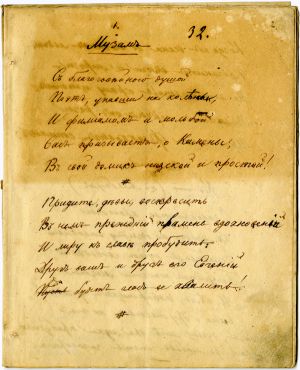 1.
32.
Музамъ
Съ благоговѣйною душой
Поэтъ, упавши на колѣны,
И фиміамомъ и мольбой
Васъ призываетъ, о Камены,
Въ свой домикъ низкой и простой!
*
Придите, дѣвы, воскресить
Въ немъ прежній пламень вдохновеній
И лиру къ славѣ пробудить:
Другъ вашъ и другъ его Евгеній
Да будетъ гласъ ее хвалить!
*